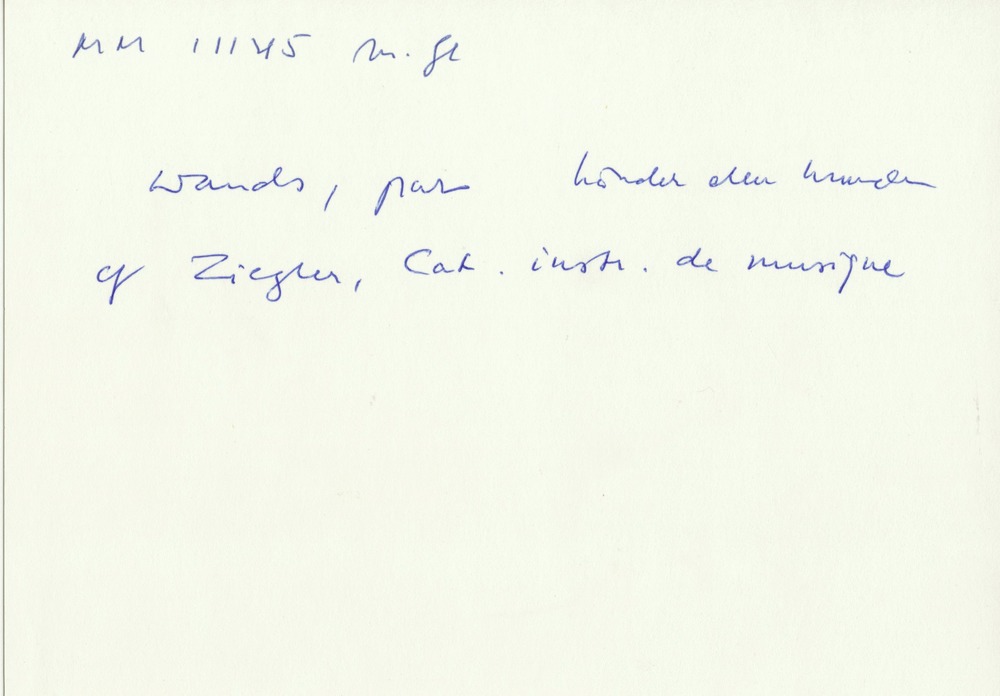 MM 11145 m.fl
wands, par händer
cf Ziegler, Cat. instr. de musique